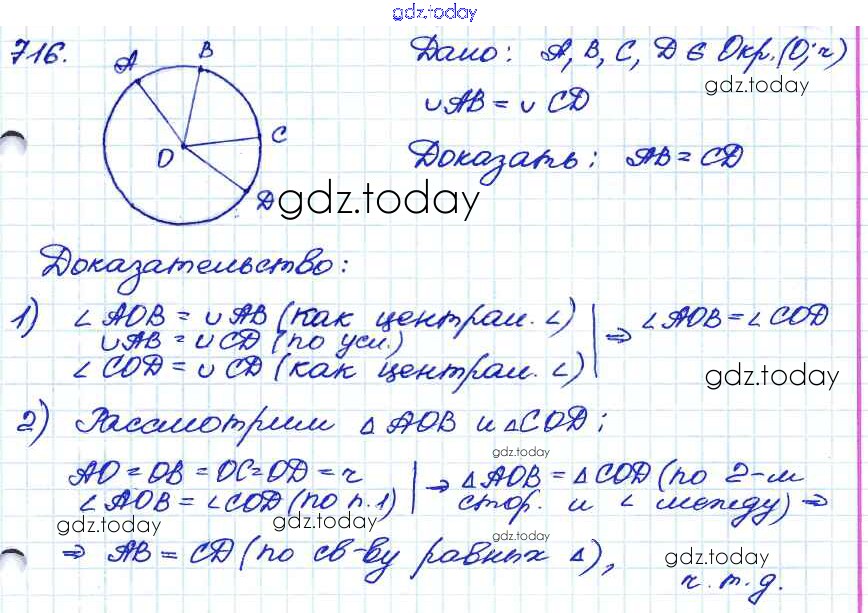 gdz.today
716.
A
B
C
D
O
Дано: A, B, C, D ∈ Окр.(O;r)
gdz.today
∪AB = ∪ CD
Доказать: AB = CD
gdz.today
Доказательство:
1) ∠ AOB = ∪ AB (как централ. ∠) | ⇒ ∠ AOB = ∠ COD
∪AB = ∪CD (по усл.)
∠ COD = ∪ CD (как централ. ∠)
gdz.today
2) Рассмотрим △ AOB и △COD:
gdz.today
AO = OB = OC = OD = r | ⇒ △ AOB = △ COD (по 2-м
∠ AOB = ∠COD (по п.1) стор. и ∠ между) ⇒
gdz.today gdz.today
⇒ AB = CD (по св-ву равных △),
gdz.today
ч.т.д.